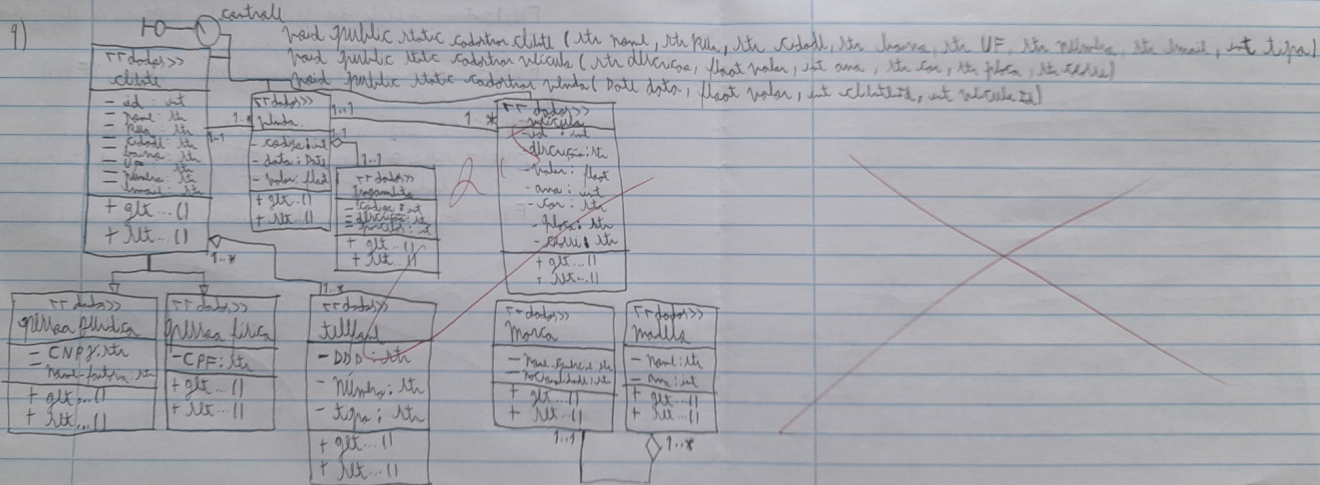 9)
controll
void public static cadastrar cliente ( str nome, str rua, str cidade, str bairro, str UF, str número, str email, int tipo)
void public static cadastrar veicula ( str descricao, float valor, int ano, str cor, str placa, str )
void public static cadastrar venda ( Date data, float valor, int clienteId, int veiculaId)
<<dados>>
cliente
- id : int
- nome : str
- rua : str
- cidade : str
- bairro : str
- UF
- número : str
- email : str
+ get...()
+ set...()
1..*
1..1
1..*
<<dados>>
venda
- codigo : int
- data : Date
- valor : float
+ get...()
+ set...()
1..1
1..1
1..1
<<dados>>
pagamento
- codigo : int
- descrição : str
- : int
+ get...()
+ set...()
2
1..*
<<dados>>
veicula
- id : int
- descrição : str
- valor : float
- ano : int
- cor : str
- placa : str
- : str
+ get...()
+ set...()
<<dados>>
pessoa juridica
- CNPJ : str
- nome-fantasia : str
+ get...()
+ set...()
<<dados>>
pessoa física
- CPF : str
+ get...()
+ set...()
1..*
<<dados>>
telefone
- DDD : str
- número : str
- tipo : str
+ get...()
+ set...()
<<dados>>
marca
- nome : str
- nacionalidade : str
+ get...()
+ set...()
1..1
<<dados>>
modelo
- nome : str
- ano : int
+ get...()
+ set...()
1..*